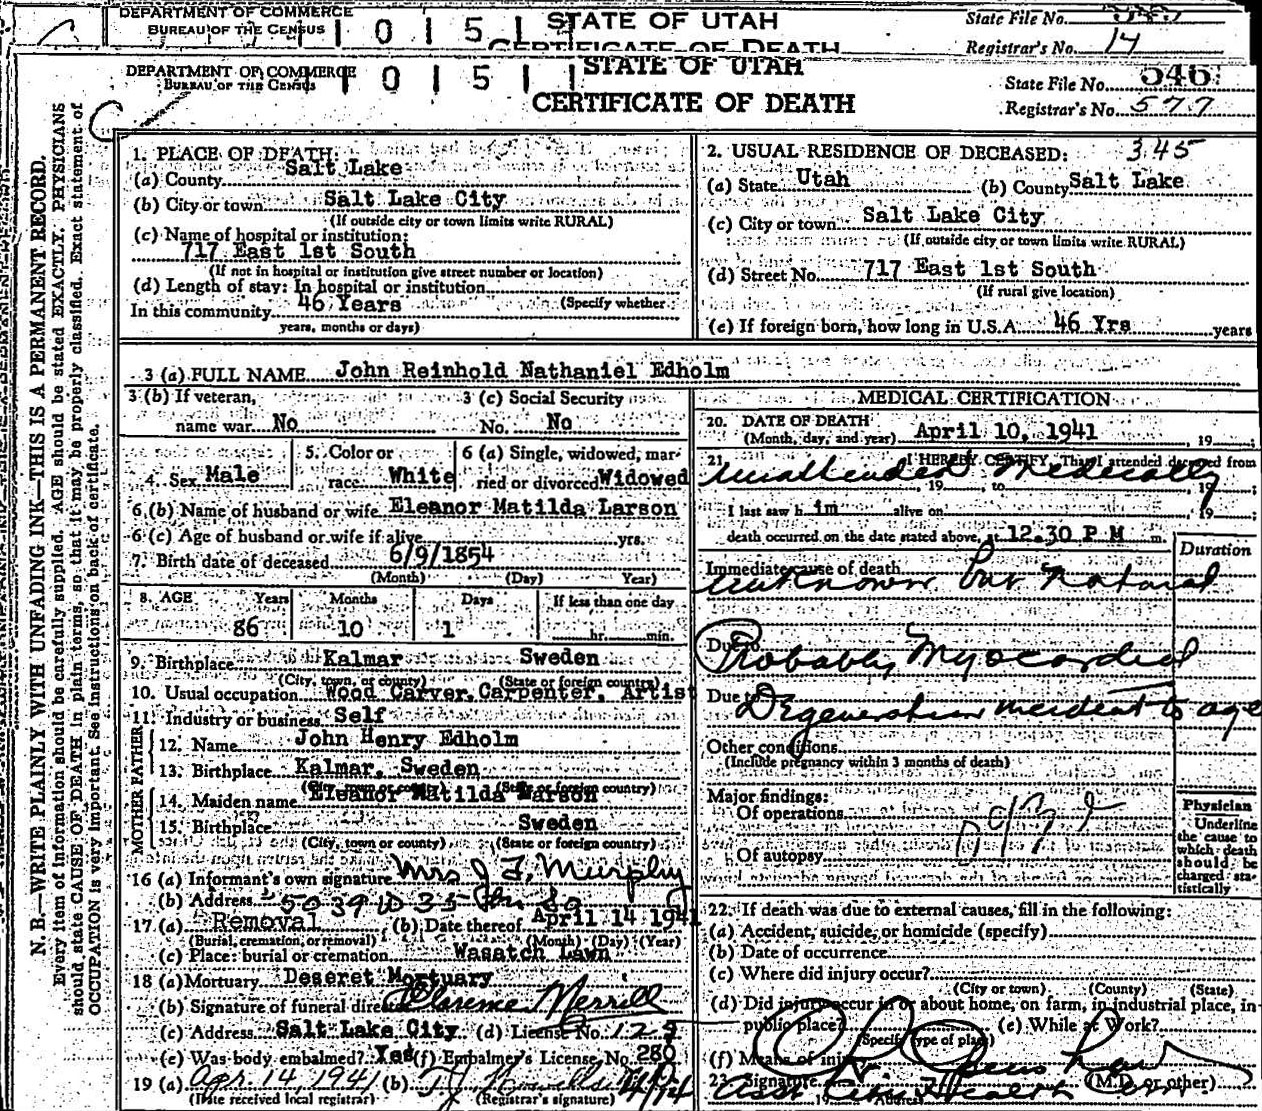 DEPARTMENT OF COMMERCE
BUREAU OF THE CENSUS
1 0 1 5 1 1
STATE OF UTAH
CERTIFICATE OF DEATH
State File No.
Registrar's No. 14
DEPARTMENT OF COMMERCE
BUREAU OF THE CENSUS
1 0 1 5 1 1
STATE OF UTAH
CERTIFICATE OF DEATH
State File No. 546
Registrar's No. 577
N. B.—WRITE PLAINLY WITH UNFADING INK—THIS IS A PERMANENT RECORD.
Every item of information should be carefully supplied. AGE should be stated EXACTLY. PHYSICIANS
should state CAUSE OF DEATH in plain terms, so that it may be properly classified. Exact statement of
OCCUPATION is very important. See instructions on back of certificate.
1. PLACE OF DEATH:
(a) County Salt Lake
(b) City or town Salt Lake City
(If outside city or town limits write RURAL)
(c) Name of hospital or institution:
717 East 1st South
(If not in hospital or institution give street number or location)
(d) Length of stay: In hospital or institution
In this community 46 Years (Specify whether
years, months or days)
2. USUAL RESIDENCE OF DECEASED: 345
(a) State Utah (b) County Salt Lake
(c) City or town Salt Lake City
(If outside city or town limits write RURAL)
(d) Street No. 717 East 1st South
(If rural give location)
(e) If foreign born, how long in U.S.A. 46 Yrs years
3 (a) FULL NAME John Reinhold Nathaniel Edholm
3 (b) If veteran,
name war No
3 (c) Social Security
No. No
4. Sex Male
5. Color or
race White
6 (a) Single, widowed, mar-
ried or divorced Widowed
6 (b) Name of husband or wife Eleanor Matilda Larson
6 (c) Age of husband or wife if alive yrs.
7. Birth date of deceased 6/9/1854
(Month) (Day) Year)
8. AGE Years Months Days If less than one day
86 10 1 hr. min.
9. Birthplace Kalmar Sweden
(City, town, or county) (State or foreign country)
10. Usual occupation Wood Carver, Carpenter, Artist
11. Industry or business Self
FATHER
12. Name John Henry Edholm
13. Birthplace Kalmar, Sweden
(City, town or county) (State or foreign country)
MOTHER
14. Maiden name Eleanor Matilda Larson
15. Birthplace Sweden
(City, town or county) (State or foreign country)
16 (a) Informant's own signature Mrs J F. Murphy
(b) Address 5039
17 (a) Removal (b) Date thereof April 14 1941
(Burial, cremation, or removal) (Month) (Day) (Year)
(c) Place: burial or cremation Wasatch Lawn
18 (a) Mortuary Deseret Mortuary
(b) Signature of funeral director Clarence Merrill
(c) Address Salt Lake City (d) License No.
(e) Was body embalmed? Yes (f) Embalmer's License No. 280
19 (a) Apr. 14, 1941 (b)
(Date received local registrar) (Registrar's signature)
MEDICAL CERTIFICATION
20. DATE OF DEATH
(Month, day, and year) April 10, 1941, 19
21. I HEREBY CERTIFY, That I attended deceased from
Unattended Medically
, 19, to, 19;
I last saw h im alive on, 19;
death occurred on the date stated above, at 12.30 P M m.
Duration
Immediate cause of death
unknown but Natural
Due to
Probably Myocardial
Due to
Degeneration incident to age
Other conditions
(Include pregnancy within 3 months of death)
Major findings:
Of operations
Of autopsy
Physician
Underline
the cause to
which death
should be
charged sta-
tistically
22. If death was due to external causes, fill in the following:
(a) Accident, suicide, or homicide (specify)
(b) Date of occurrence
(c) Where did injury occur?
(City or town) (County) (State)
(d) Did injury occur in or about home, on farm, in industrial place, in
public place? (e) While at Work?
(Specify type of place)
(f) Means of injury
23. Signature (M.D. or other)
Address